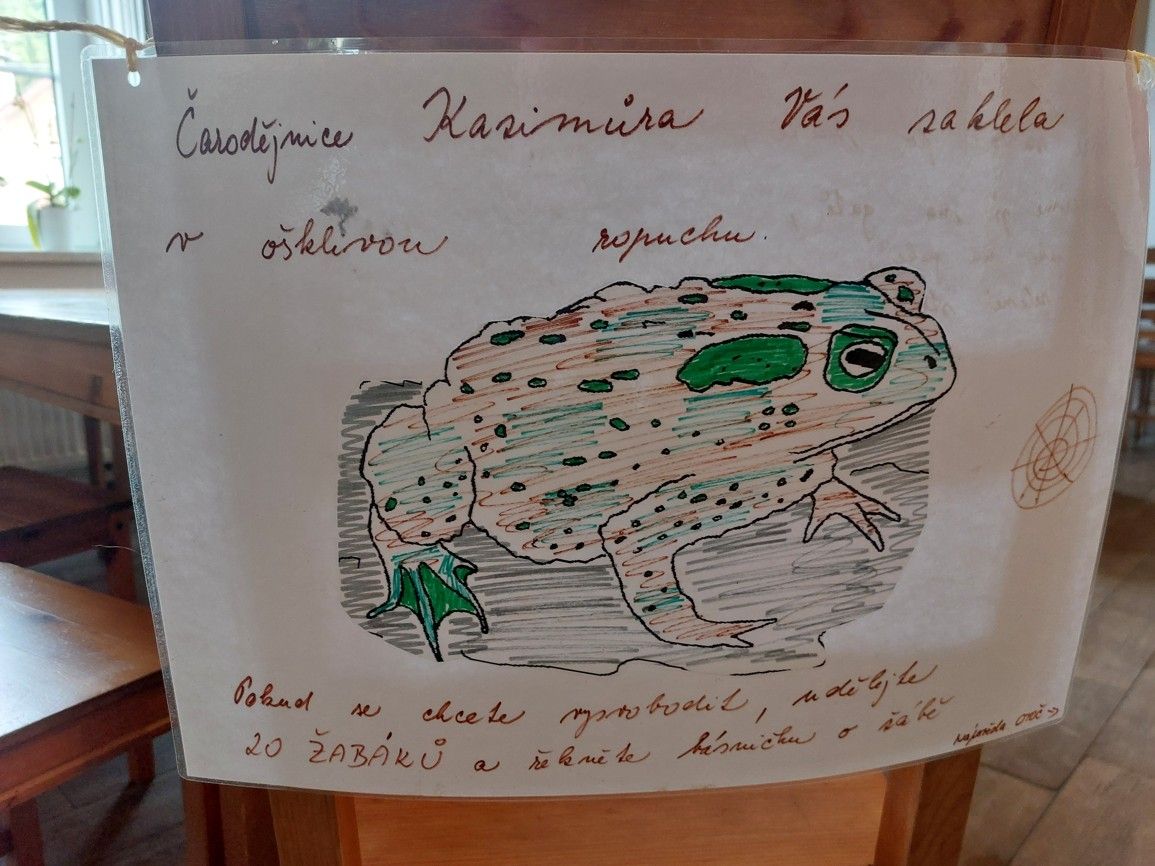 Čarodějnice Kazimůra Vás zaklela
v ošklivou ropuchu.
Pokud se chcete vysvobodit, udělejte
20 ŽABÁKŮ a řekněte básničku o žábě
nápověda OTOČ →